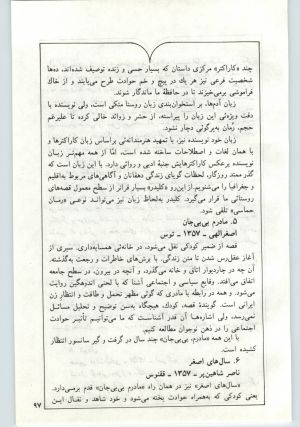 چند «کاراکتر» مرکزی داستان که بسیار حسی و زنده توصیف شده‌اند، ده‌ها
شخصیت فرعی نیز هر یک در پیچ و خم حوادث طرح می‌یابند و از خاک
فراموشی برمی‌خیزند تا در حافظهٔ ما ماندگار شوند.
زبان آدم‌ها، بر استخوان‌بندی زبان روستا متکی است، ولی نویسنده با
دقت ویژه‌ئی این زبان را پیراسته، از حشر و زوائد خالی کرده تا علیرغم
حجم، زمان به‌پرگوئی دچار نشود.
زبان خود نویسنده نیز، با تمهید هنرمندانه‌ئی براساس زبان کاراکترها و
با همان لغات و اصطلاحات ساخته شده است، امّا از همه مهمتر زبان
نویسنده برعکس کاراکترهایش جنبهٔ ادبی و روائی دارد. با این زبان است که
گذر ممتد روزگار، لحظات گویای زندگی دهقانان و آگاهی‌های مربوط به‌اقلیم
و جغرافیا را می‌شنویم. از این‌رو «کلیدر» بسیار فراتر از سطح معمول قصه‌های
روستائی ما قرار می‌گیرد. کلیدر به‌لحاظ زبان نیز می‌تواند نوعی «رمان
حماسی» تلقی شود.
۵. مادرم بی‌بی‌جان
اصغرالهی ـ ۱۳۵۷ ـ توس
قصه از ضمیر کودکی نقل می‌شود، در خانه‌ئی همسایه‌داری. سیری از
آغاز عقل‌رس شدن تا متن زندگی. با برش‌های خاطرات و رجعت به‌گذشته.
آن چه در چاردیوار اتاق و خانه می‌گذرد، و آنچه در بیرون، در سطح جامعه
اتفاق می‌افتد. وقایع سیاسی و اجتماعی آشنا که با لحنی اندوهگین روایت
می‌شود. و همه در رابطه با مادری که گوئی مظهر تحمل و طاقت و انتظار زن
ایرانی است. گویندهٔ قصه، کودک، هیچگاه به‌سن توضیح و تحلیل مسائل
نمی‌رسد، ولی اشاره‌ها آن قدر آشناست که ما می‌توانیم تأثیر حوادث
اجتماعی را در ذهن نوجوان مطالعه کنیم.
با این همه «مادرم، بی‌بی‌جان» چند سال در گرفت و گیر سانسور انتظار
کشیده است.
۶. سال‌های اصغر
ناصر شاهین‌پر ـ ۱۳۵۷ ـ ققنوس
«سال‌های اصغر» نیز در همان راه «مادرم بی‌بی‌جان» قدم برمی‌دارد.
یعنی کودکی که به‌همراه حوادث پخته می‌شود و خود شاهد و نقال این
۹۷